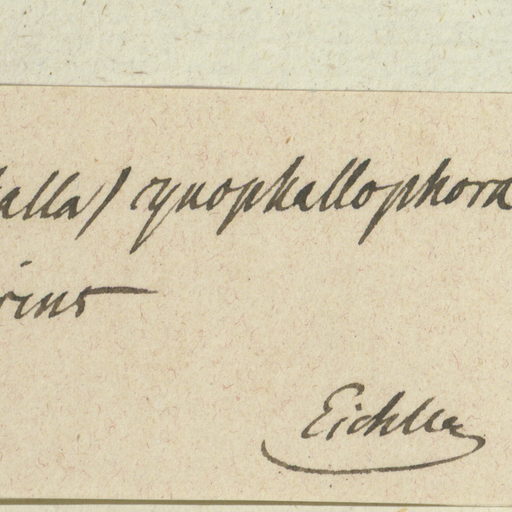 alla) cynophallophora
rius
Eichler